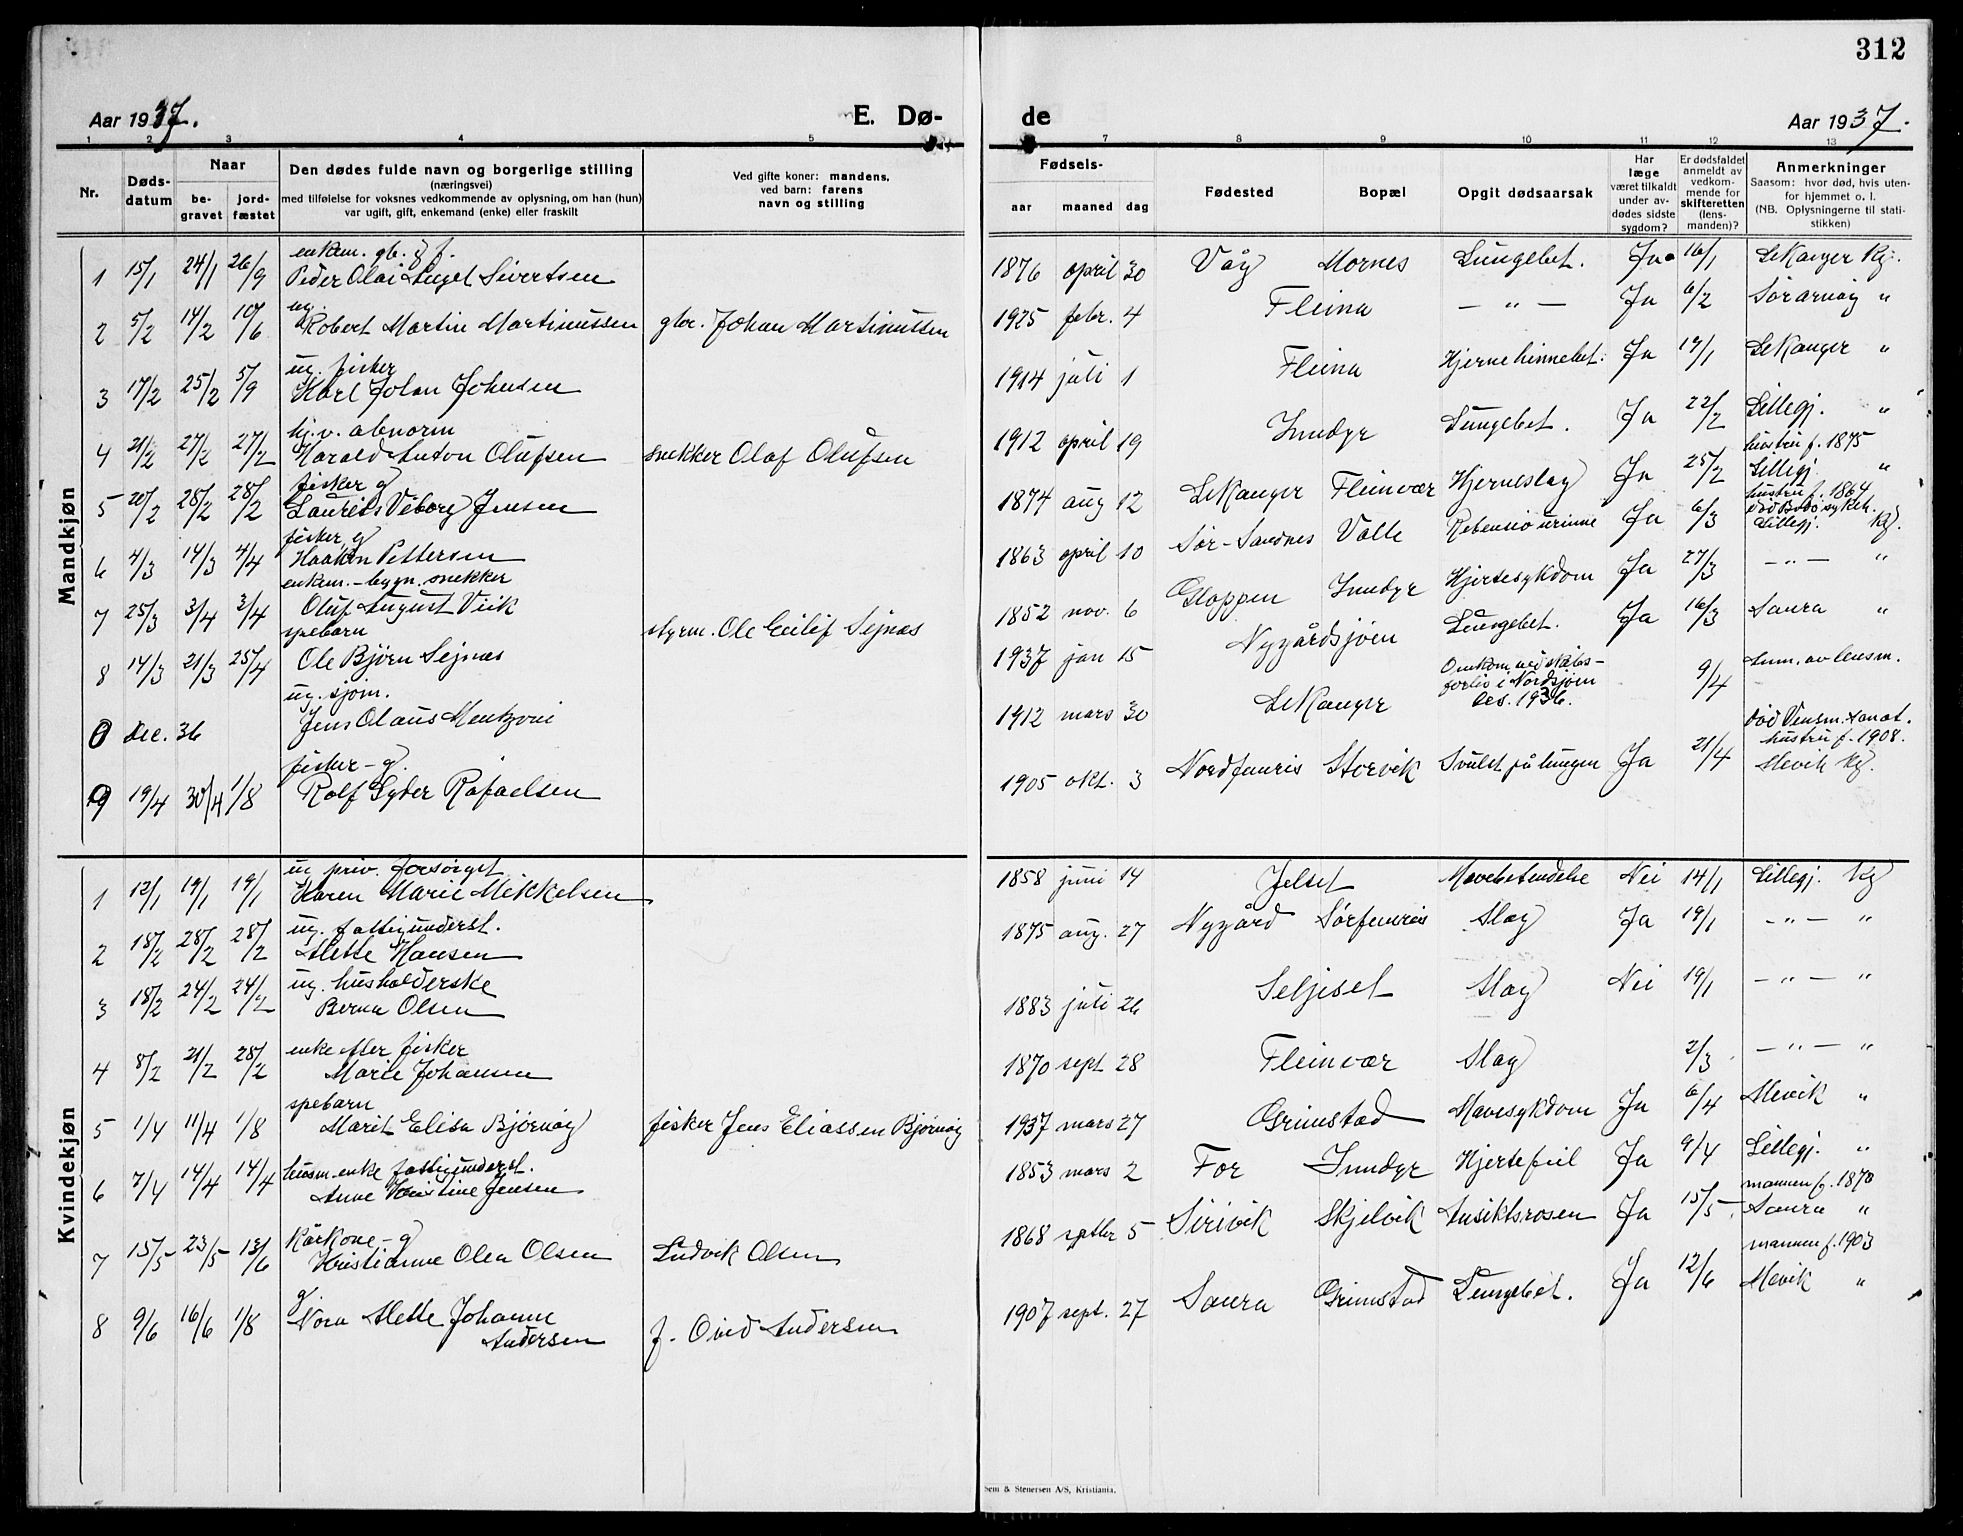 312
Aar 1937.
E. Dø-
de
Aar 1937.
1 2 3 4 5 7 8 9 10 11 12 13
Nr.
Døds-
datum
Naar
be-
gravet
jord-
fæstet
Den dødes fulde navn og borgerlige stilling
(næringsvei)
med tilføielse for voksnes vedkommende av oplysning, om han (hun)
var ugift, gift, enkemand (enke) eller fraskilt
Ved gifte koner: mandens,
ved barn: farens
navn og stilling
Fødsels-
aar maaned dag
Fødested
Bopæl
Opgit dødsaarsak
Har
læge
været tilkaldt
under av-
dødes sidste
sygdom?
Er dødsfaldet
anmeldt av
vedkom-
mende for
skifteretten
(lens-
manden)?
Anmerkninger
Saasom: hvor død, hvis uten-
for hjemmet o. l.
(NB. Oplysningerne til stati-
stikken)
Mandkjøn
enkem. gbr. & f.
1 15/1 24/1 26/9 Peder Olai Angel Sivertsen 1876 april 30 Våg Mornes Lungebet. Ja 16/1 LeKanger Kg.
ug.
2 5/2 14/2 10/6 Robert Martin Martinussen gbr. Johan Martinussen 1925 febr. 4 Fleina — " — Ja 6/2 Sørarnøy "
ug. fisker
3 17/2 25/2 5/9 Karl Johan Johnsen 1914 juli 1 Fleina Hjernehinnebet. Ja 19/1 LeKanger "
hj.v. abnorm
4 21/2 27/2 27/2 Harald Anton Olufsen snekker Olaf Olufsen 1912 april 19 Inndyr Lungebet. Ja 22/2 Lillegj. "
fisker g hustru f. 1875
5 20/2 28/2 28/2 Laurits Viborg Jensen 1874 aug 12 LeKanger Fleinvær Hjerneslag Ja 25/2 Lillegj. "
fisker g hustru f. 1864
død Bodø sykeh.
6 4/3 14/3 4/4 Haakon Pettersen 1863 april 10 Sør-Sandnes Valle Ja 6/3 Lillegj. Kg.
enkem. - bygn. snekker
7 25/3 3/4 3/4 Oluf August Viik 1852 nov. 6 Gloppen Inndyr Hjertesykdom Ja 27/3 — " — "
spebarn
8 14/3 21/3 25/4 Ole Bjørn Sejnæs styrm. Ole Eilif Sejnæs 1937 jan 15 Nygårdsjøen Lungebet. Ja 16/3 Saura "
ug. sjøm. Omkom ved skibs-
forlis i Nordsjøen
des. 1936.
0 dec. 36 Jens Olaus Mentzoni 1912 mars 30 LeKanger 9/4 Anm. av lensm.
fisker - g. død Vensm. sanat.
hustru f. 1908.
9 19/4 30/4 1/8 Rolf Syder Rafaelsen 1905 okt. 3 Nordfenris Storvik Svulst på lungen Ja 21/4 Mevik Kg.
Kvindekjøn
ug priv. forsørget
1 12/1 19/1 19/1 Karen Marie Mikkelsen 1858 juni 14 Jelset Mavebetendelse Nei 14/1 Lillegj. Kg
ug. fattigunderst.
2 18/2 28/2 28/2 Mette Hansen 1875 aug. 27 Nygård Sørfenris Slag Ja 19/1 — " — "
ug. husholderske
3 18/2 24/2 24/2 Berna Olsen 1883 juli 26 Seljeset Slag Nei 19/1 — " — "
enke etter fisker
4 8/2 21/2 28/2 Marie Johansen 1870 sept 28 Fleinvær Slag 2/3 — " — "
spebarn
5 1/4 11/4 1/8 Marit Elisa Bjørnøy fisker Jens Eliassen Bjørnøy 1937 mars 27 Grimstad Mavesykdom Ja 6/4 Mevik "
husm. enke fattigunderst.
6 7/4 14/4 14/4 Anne Kristine Jensen 1853 mars 2 For Inndyr Hjertefeil Ja 9/4 Lillegj. "
Kårkone - g mannen f. 1870
7 15/5 23/5 13/6 Kristianne Olea Olsen Ludvik Olsen 1868 septbr 5 Sirivik Skjelvik Ansiktsrosen Ja 15/5 Saura "
g. mannen f. 1903
8 9/6 16/6 1/8 Nora Mette Johanne
Andersen f. Oved Andersen 1907 sept. 27 Saura Grimstad Lungebet. Ja 12/6 Mevik "
Sem & Stenersen A/S, Kristiania.